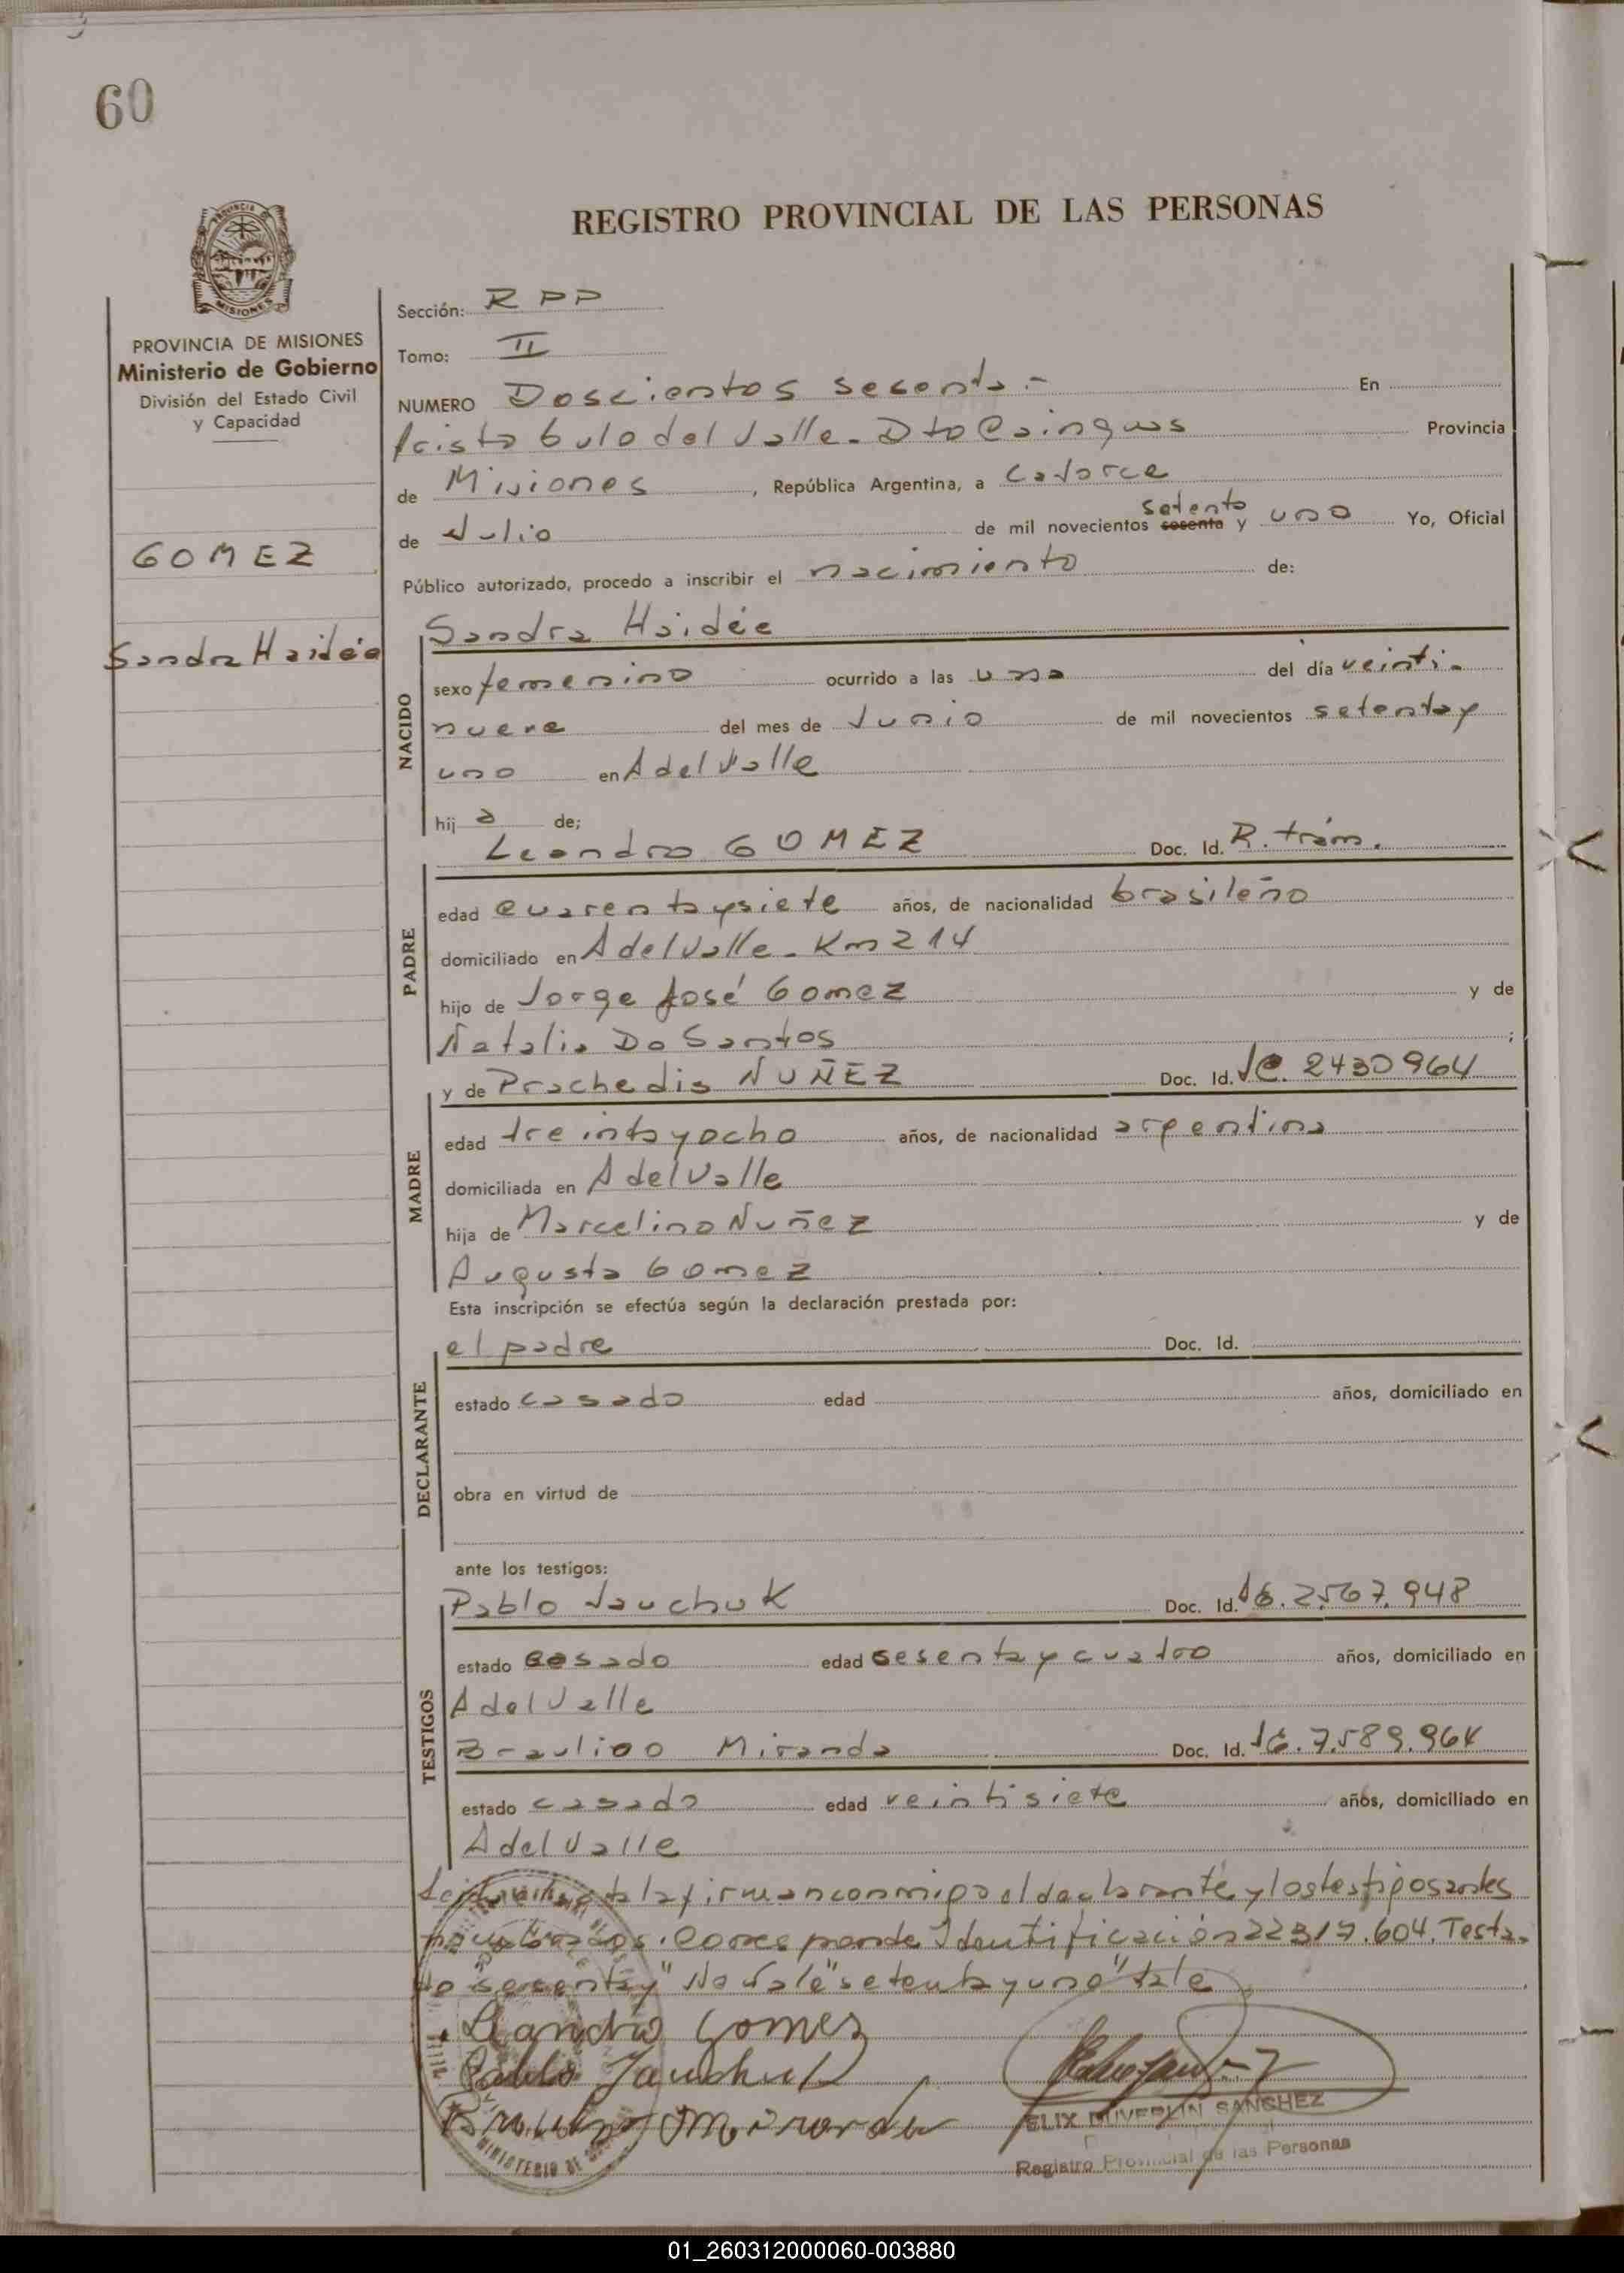 60
REGISTRO PROVINCIAL DE LAS PERSONAS
PROVINCIA DE MISIONES
Ministerio de Gobierno
División del Estado Civil
y Capacidad
GOMEZ
Sandra Haidée
Sección: RPP
Tomo: II
NUMERO Doscientos sesenta.- En
Aristobulo del Valle - Dto Cainguas Provincia
de Misiones, República Argentina, a Catorce
setenta
de Julio de mil novecientos sesenta y uno Yo, Oficial
Público autorizado, procedo a inscribir el nacimiento de:
Sandra Haidée
NACIDO
sexo femenino ocurrido a las una del día veinti-
nueve del mes de Junio de mil novecientos setenta y
uno en A del Valle
hij a de;
Leandro GOMEZ Doc. Id. R. trám.
PADRE
edad cuarenta y siete años, de nacionalidad brasileño
domiciliado en A del Valle - Km 214
hijo de Jorge José Gomez y de
Natalia Do Santos ;
y de Prachedis NUÑEZ Doc. Id. 2430964
MADRE
edad treinta y ocho años, de nacionalidad argentina
domiciliada en A del Valle
hija de Marcelino Nuñez y de
Augusta Gomez
Esta inscripción se efectúa según la declaración prestada por:
el padre Doc. Id.
DECLARANTE
estado casado edad años, domiciliado en
obra en virtud de
ante los testigos:
Pablo Jauchuk Doc. Id. 2.567.948
TESTIGOS
estado casado edad sesenta y cuatro años, domiciliado en
A del Valle
Braulino Miranda Doc. Id. 7.589.964
estado casado edad veintisiete años, domiciliado en
A del Valle
Leida el acta la firman conmigo el declarante y los testigos antes
nombrados. Corresponde Identificación 22317.604. Testa-
do sesenta y" No Vale "setenta y uno" Vale
Leandro Gomes
Pablo Jauchuk
Braulino Miranda
FELIX DUVERLIN SANCHEZ
Registro Provincial de las Personas
MINISTERIO DE
01_260312000060-003880